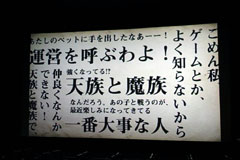 ごめん私
ゲームとか、
よく知らないから
あたしのペットに手を出したなあーー!
運営を呼ぶわよ!
強くなってる!?
天族と魔族
なんだろう、あの子と戦うのが、
最近楽しみになってきてる
一番大事な人
仲良くなんか
できない!
天族と魔族で